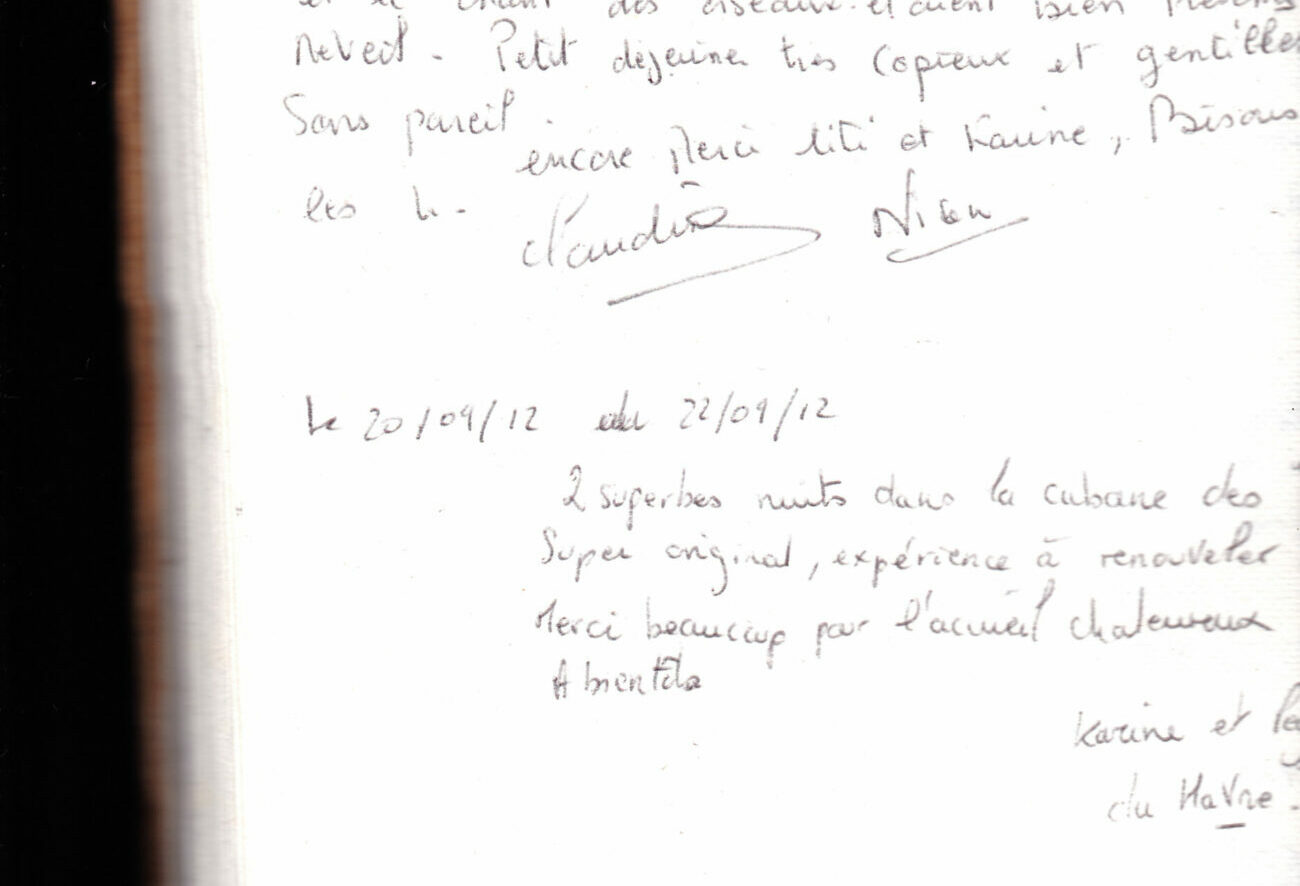 des oiseaux étaient bien
Réveil - Petit déjeuner très copieux et gentilles
Sans pareil. encore Merci titi et Karine, Bisous
les
Claudia Nico
le 20/09/12 au 22/09/12
2 superbes nuits dans la cabane des
Super original, expérience à renouveler
Merci beaucoup par l'accueil chaleureux
A bientôt
Karine et
du Havre.